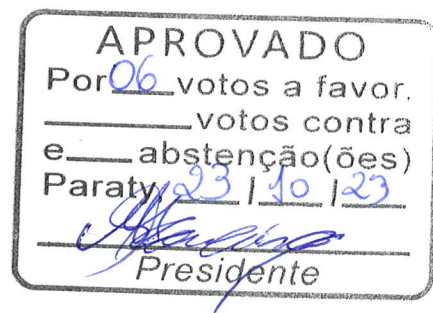 APROVADO
Por 06 votos a favor.
____ votos contra
e ____ abstenção(ões)
Paraty, 23 / 10 / 23
Presidente